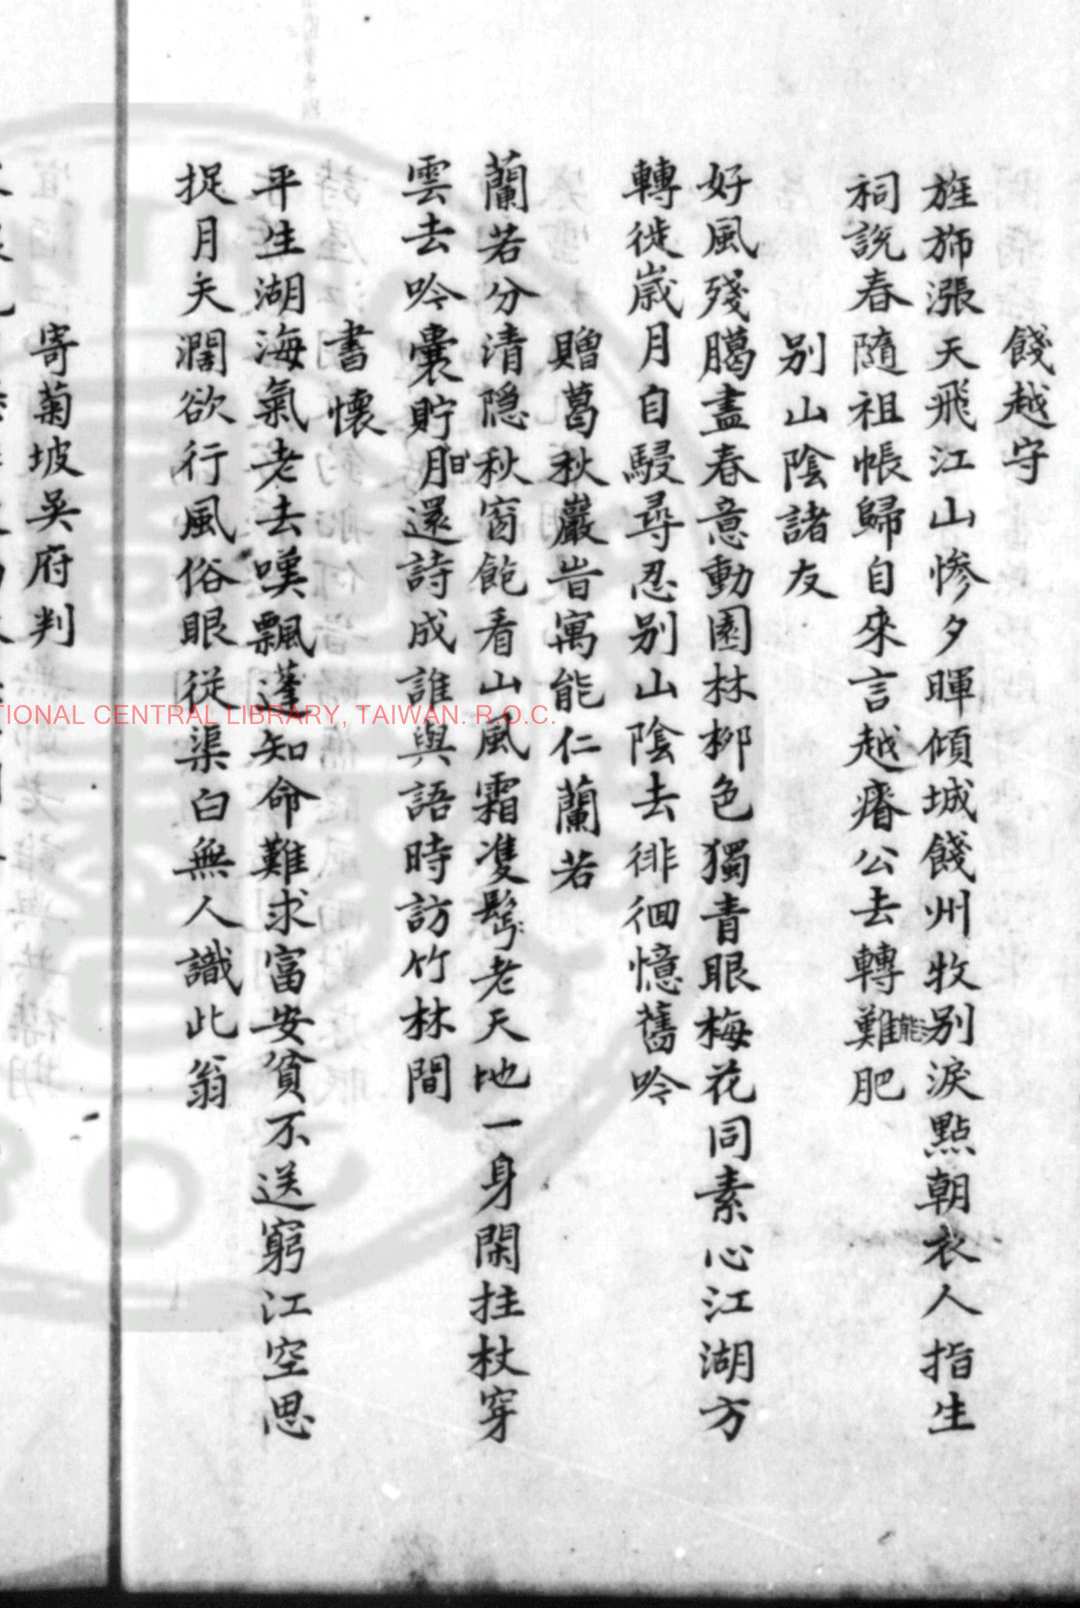 餞越守
旌斾漲天飛江山慘夕暉傾城餞州牧別淚點朝衣人指生
祠說春隨祖帳歸自來言越瘠公去轉難肥
別山陰諸友
好風殘臈盡春意動園林柳色獨青眼梅花同素心江湖方
轉徙歲月自駸尋忍別山陰去徘徊憶舊吟
贈葛秋巖旹寓能仁蘭若
蘭若分清隠秋窗飽看山風霜雙鬂老天地一身閑拄杖穿
雲去吟囊貯月還詩成誰與語時訪竹林間
書懷
平生湖海氣老去嘆飄蓬知命難求富安貧不送窮江空思
捉月天濶欲行風俗眼從渠白無人識此翁
寄菊坡吳府判
TIONAL CENTRAL LIBRARY, TAIWAN. R.O.C.